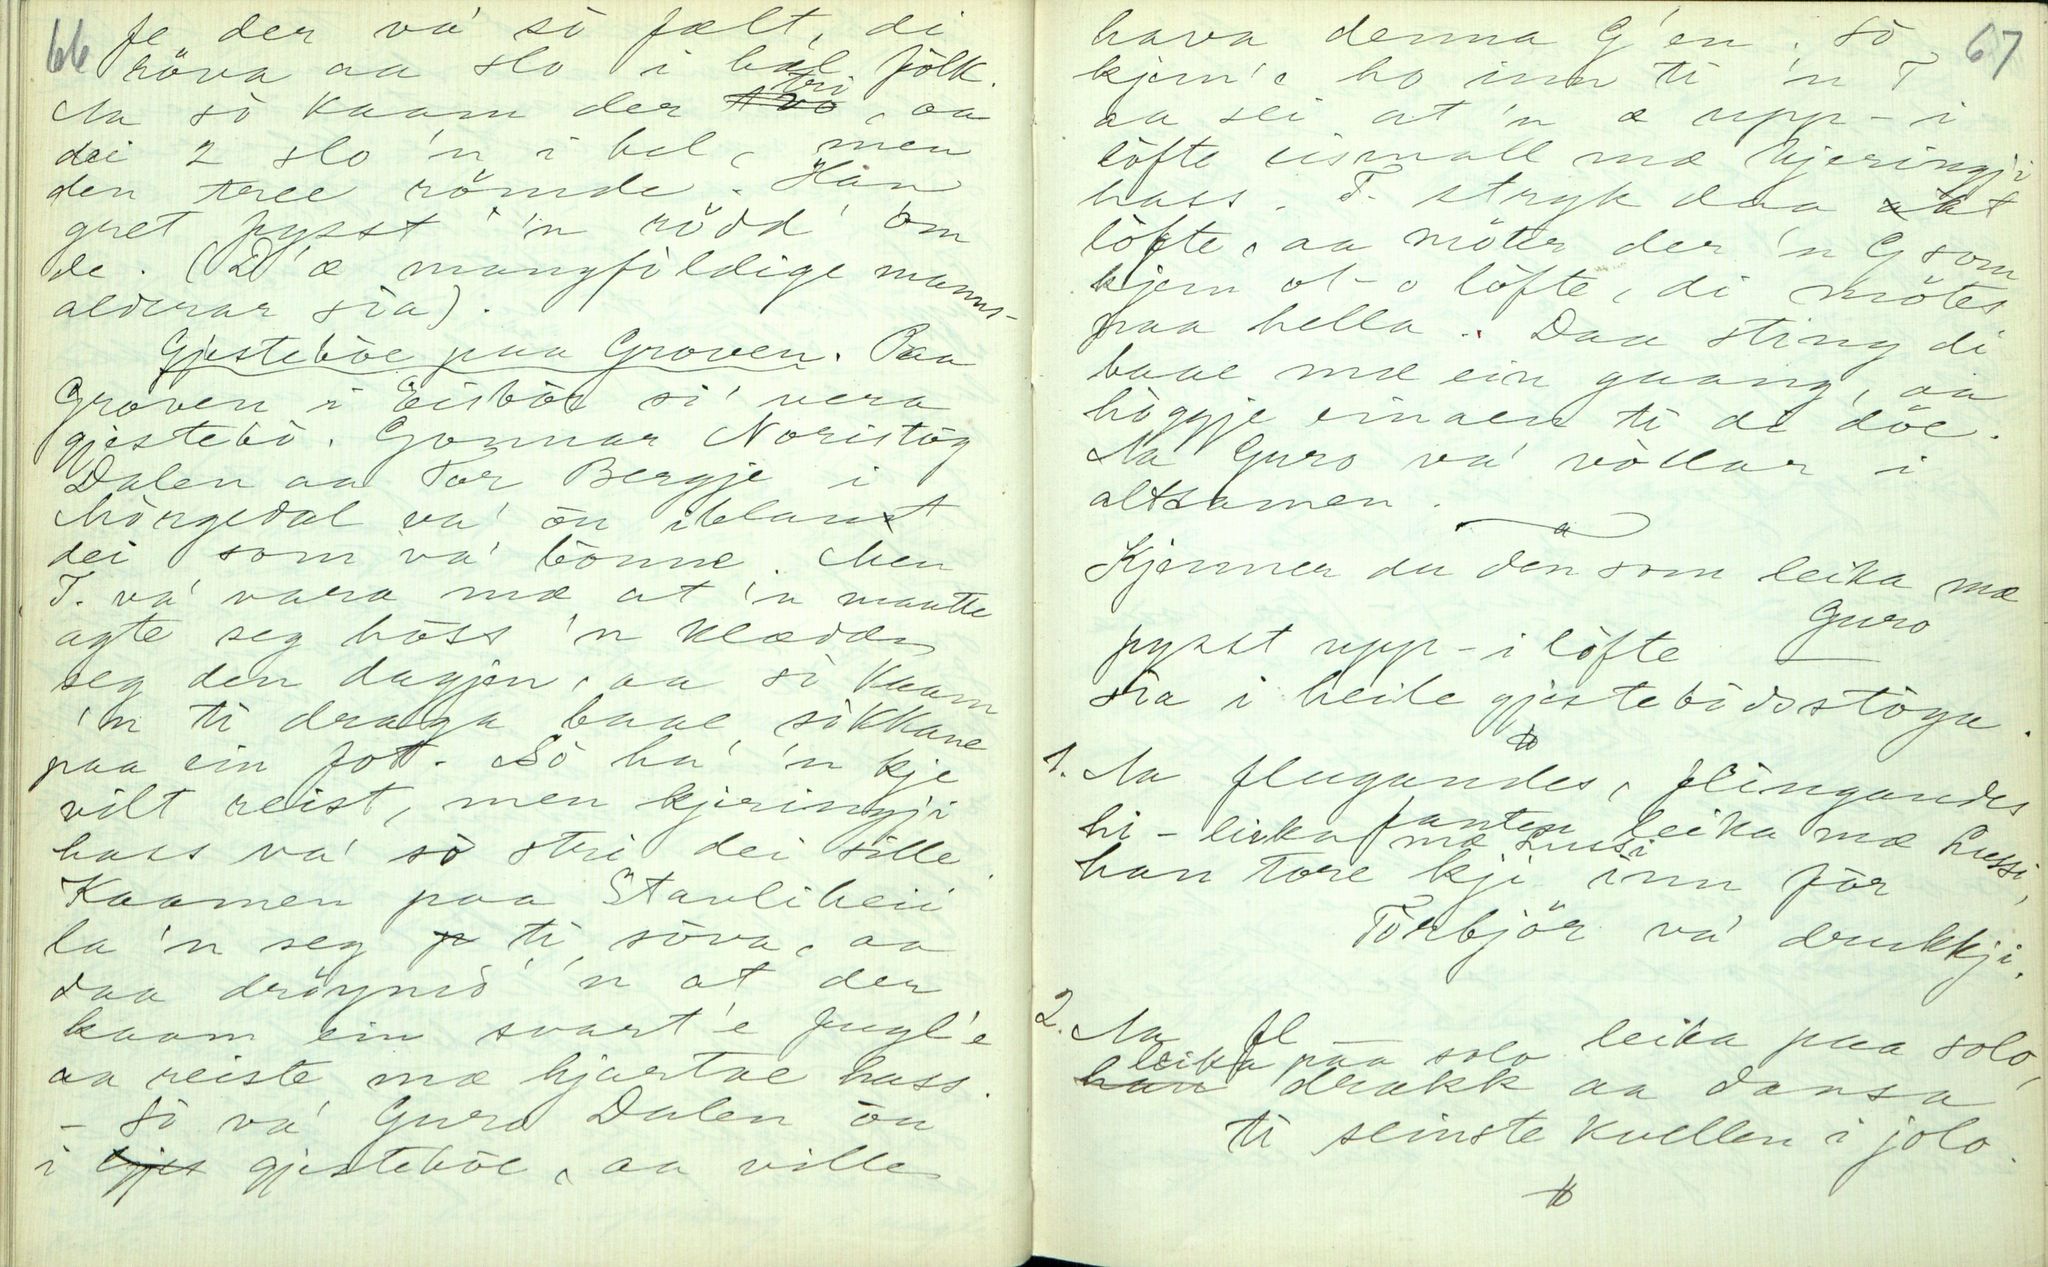 66
fe der va' så fælt, di
röva aa slo i hæl fölk.
Aa så kaam der tvo tri, aa
dei 2 slo 'n i hel, men
den tree römde. Han
gret pysst 'n rödd' om
de. (D' æ mangföldige manns-
aldrar sia).
Gjesteböe paa Groven. Paa
Groven i Öisböe si' vera
gjestebö. Gonnar Noristög
Dalen aa Tor Bergje i
Mörgedal va' ön iblant
dei som va' bönne. Men
T. va' vara mæ at 'n maatte
agte seg höss 'n klædde
seg den dagjen, aa så kaam
'n ti draga baae sökkane
paa ein fot. Så ha' 'n kje
vilt reist, men kjeringji
hass va' så stri dei sille.
Kaamen paa Stavliheii
la 'n seg ti söva, aa
daa dröymd' 'n at der
kaam ein svart'e fugl'e
aa reiste mæ hjartae hass.
- Så va' Guro Dalen ön
i gjes gjesteböe, aa ville
67
hava denna G'en. Så
kjem'e ho inn ti 'n T
aa sei at 'n æ upp-i
löfte eismall mæ kjeringji
hass. T. stryk daa at
löfte, aa möter der 'n G som
kjem ot-o löfte, di mötes
paa hella. Daa sting di
baae mæ ein gaang, aa
höggje einaen ti di döe.
Aa Guro va' völlar i
altsamen.
Kjenner du den som leika mæ
Guro
pysst upp-i löfte
sia i heile gjestebödsstöga.
1. Aa flugandes, flingandes
hi-leika fanten leika mæ Lussi,
mæ Lussi
han tore kji inn för
Törbjör va' drukkji.
2. Aa fl — leika paa solo,
leika paa solo
han drakk aa dansa
ti seinste kvellen i jolo.